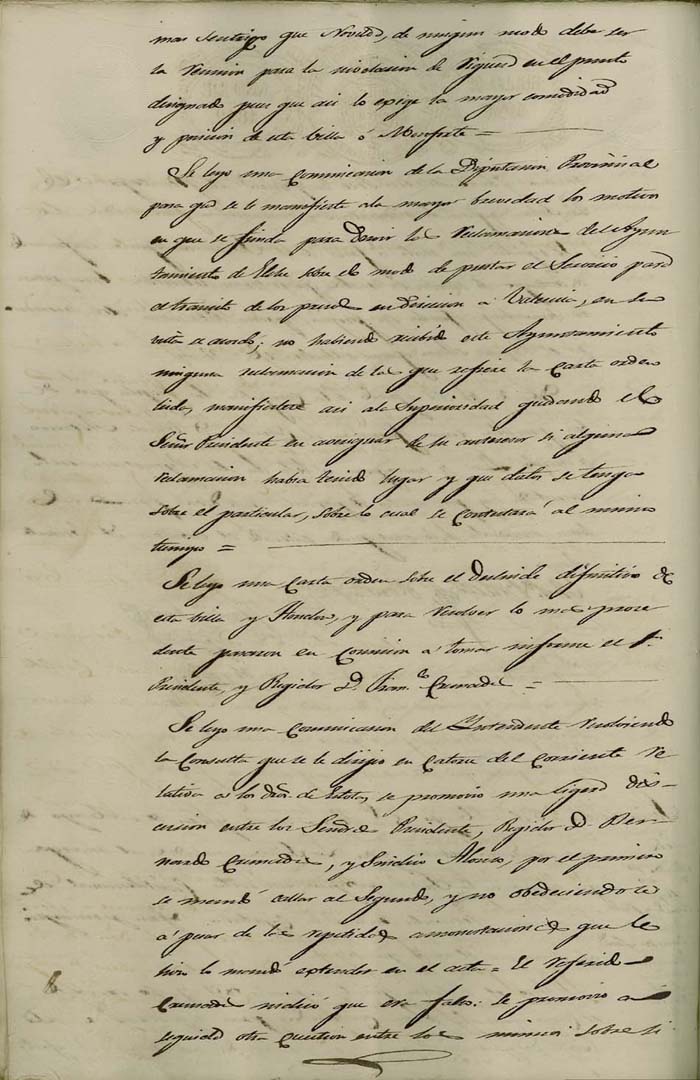 mas Sentajoso que Novelda, de ningun modo debe ser
la reunion para la nivelacion de en el punto
designado pues que asi lo exige la mayor comodidad
y posicion de esta Villa ó Monforte =
Se leyo una Comunicacion de la Diputacion Provincial
para que se le manifieste a la mayor brevedad los motivos
en que se funda para las reclamaciones del Ayun
tamiento de Elche sobre el modo de prestar el Servicio para
el transito de los presos en direccion a Valencia, en su
vista se acordo; no habiendo recibido este Ayuntamiento
ninguna reclamacion de las que refiere la Carta orden
leida, manifiestese asi a la Superioridad quedando el
Señor Presidente en averiguar de su antecesor si alguna
reclamacion habia tenido lugar y que datos se tenga
sobre el particular, sobre lo cual se Contestará al mismo
tiempo =
Se leyo una Carta orden sobre el deslinde difinitivo de
esta Villa y Hondon, y para resolver lo mas proce
dente pasaron en Comision a tomar informe el S.
Presidente, y Regidor D. Fran.co Cremades =
Se leyo una Comunicacion del Intendente resolviendo
la Consulta que se le dirijio en Catorce del Corriente re
lativa a los de se promovio una ligera dis-
cusion entre los Señores Presidente, Regidor D. Ber-
nardo Cremades, y Sindico Alonso, por el primero
se mandó callar al Segundo, y no obedeciendole
á pesar de las repetidas amonestaciones que le
hizo lo mandó extender en el acta = El referido
Cremades indicó que era falso: se promovio a
seguida otra Cuestion entre los mismos sobre si